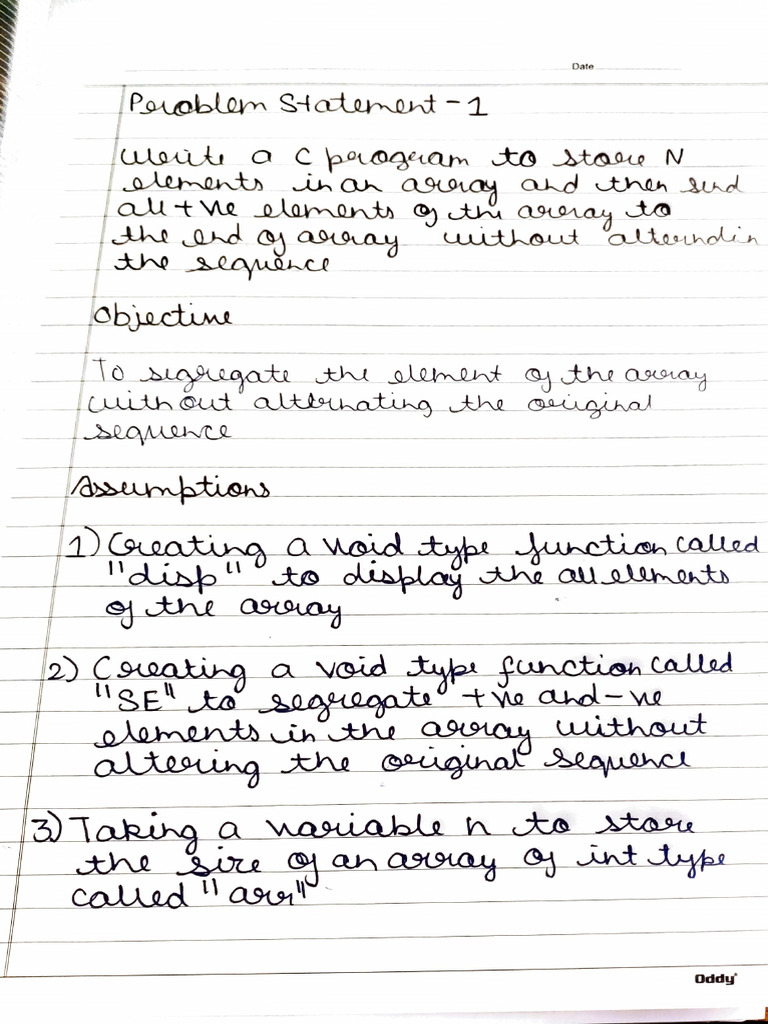 Date
Problem Statement - 1
Write a C program to store N
elements in an array and then send
all +ve elements of the array to
the end of array without alterndin
the sequence
Objective
To segregate the element of the array
without alternating the original
sequence
Assumptions
1) Creating a void type function called
"disp" to display the all elements
of the array
2) Creating a void type function called
"SE" to segregate +ve and -ve
elements in the array without
altering the original sequence
3) Taking a variable n to store
the size of an array of int type
called "arr"
Oddy